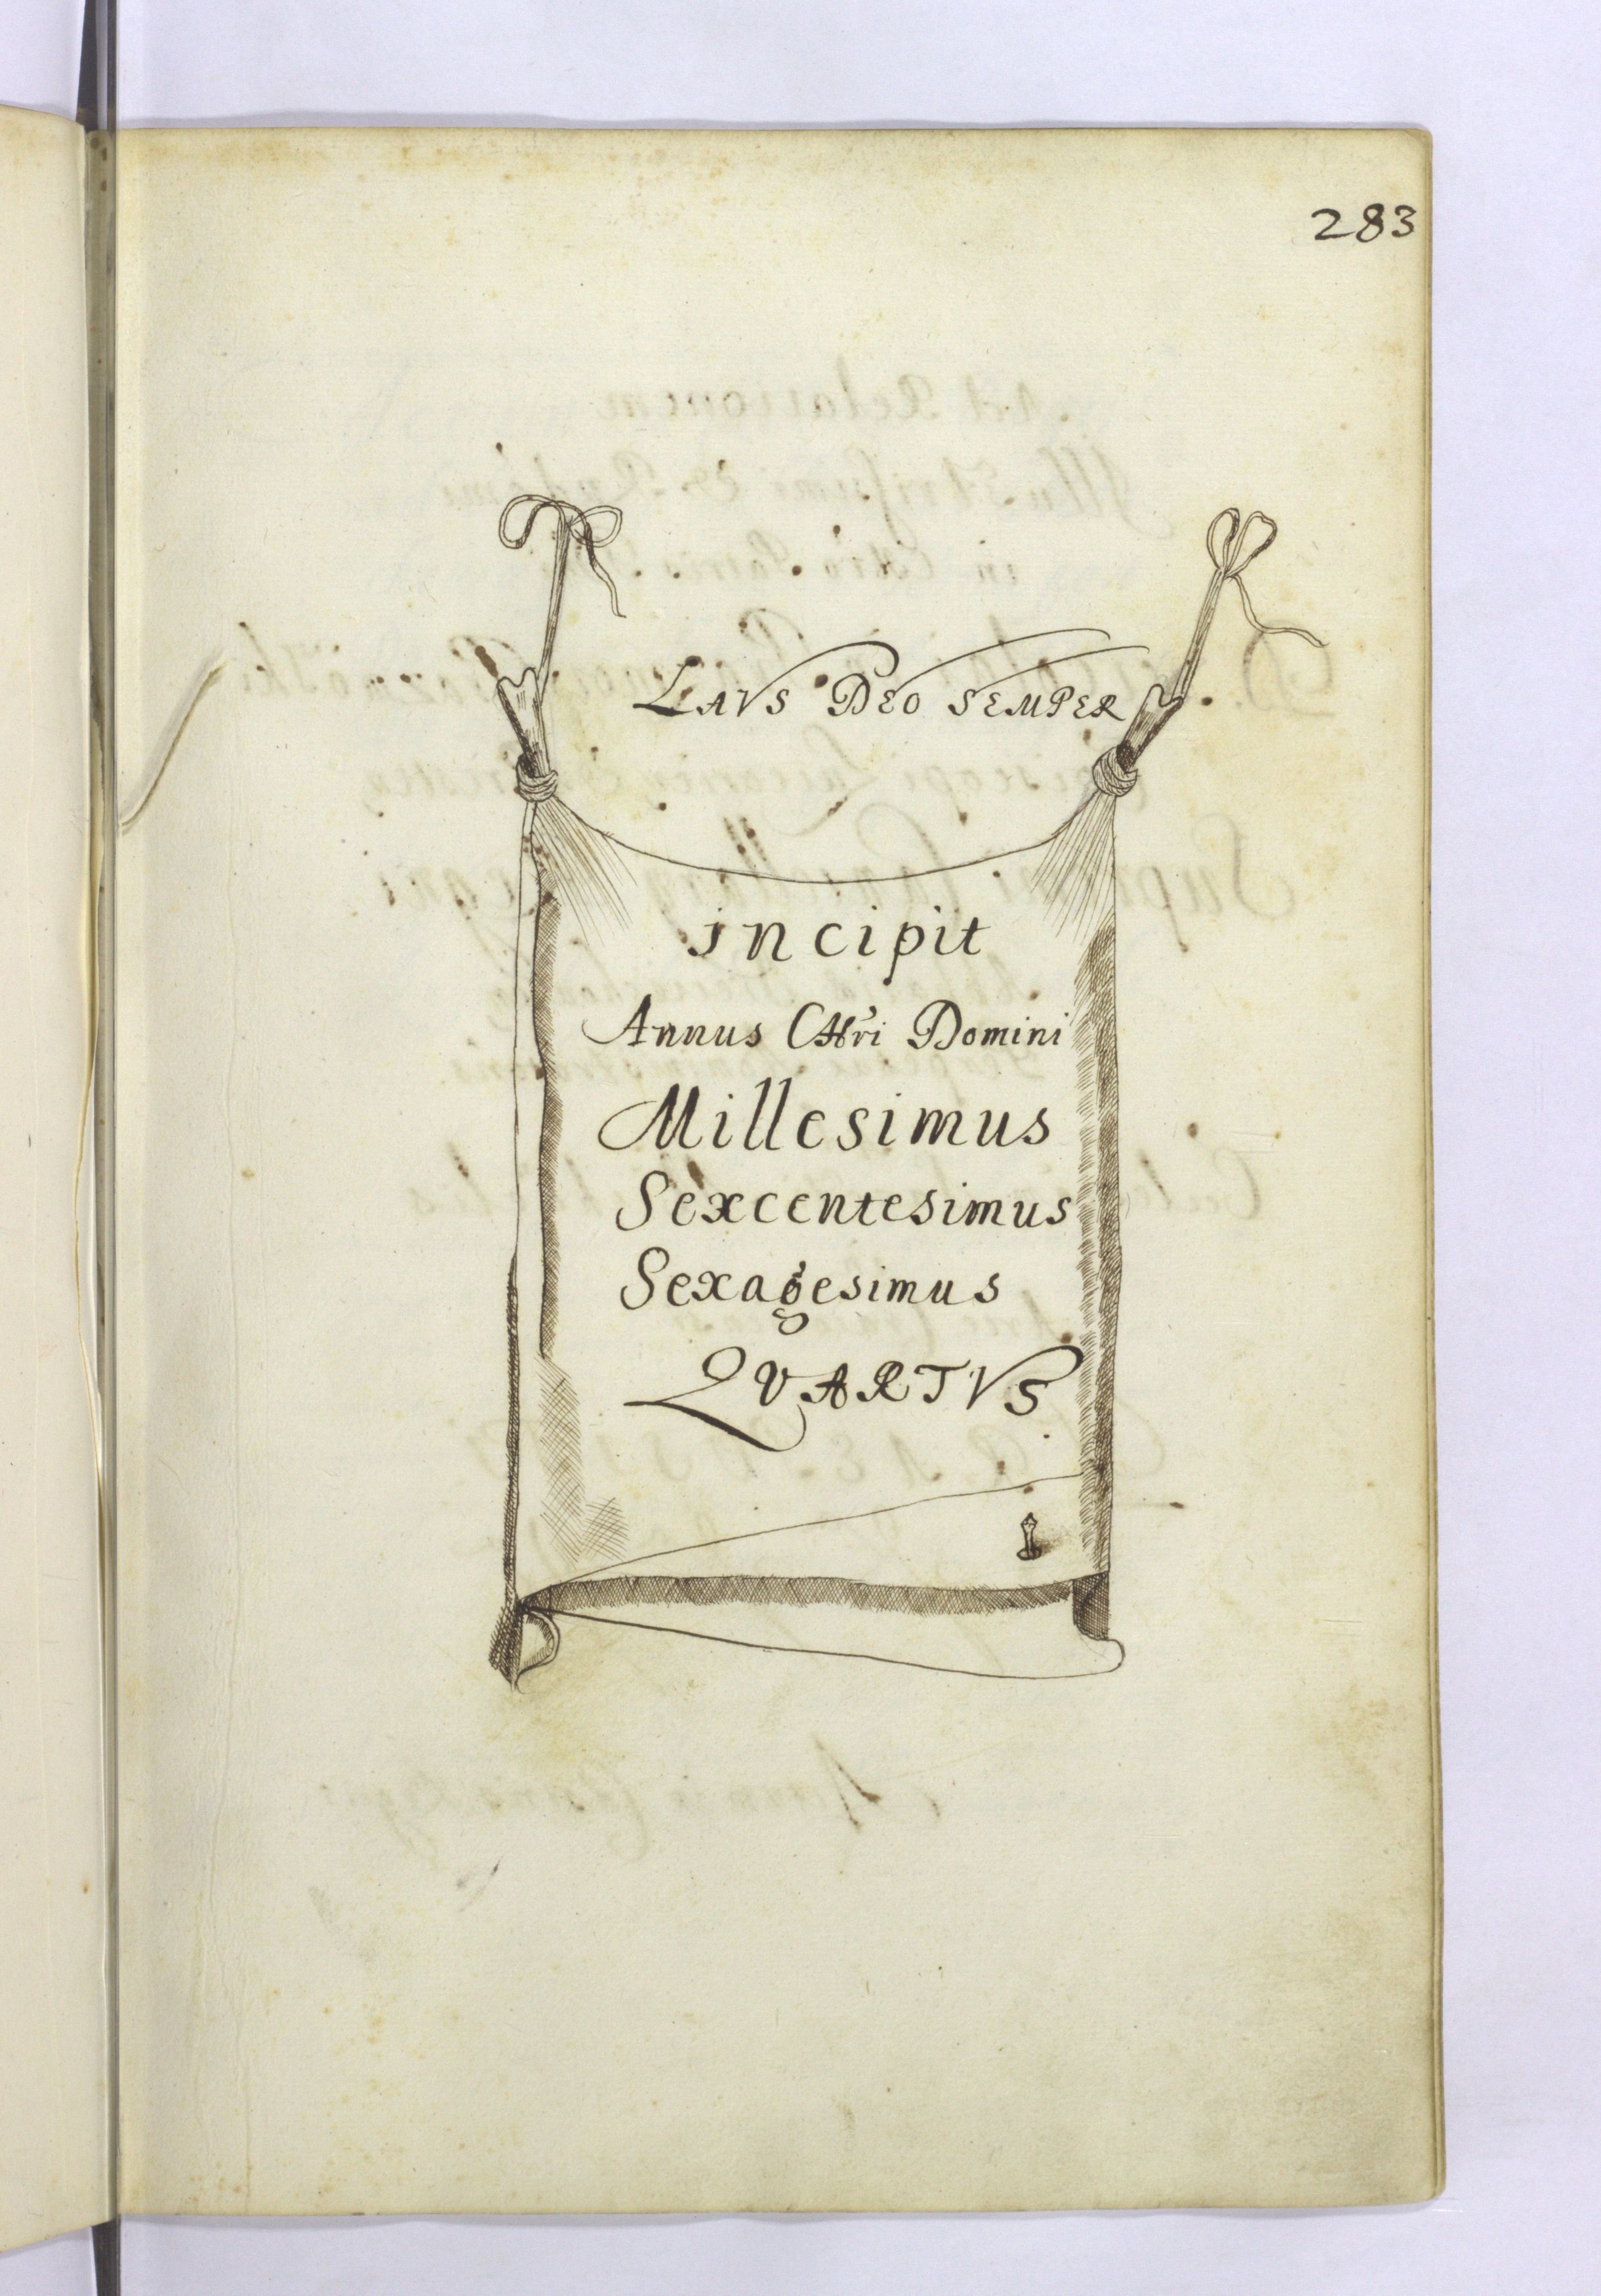 283
LAVS DEO SEMPER
incipit
Annus CHri Domini
Millesimus
Sexcentesimus
Sexagesimus
QVARTVS